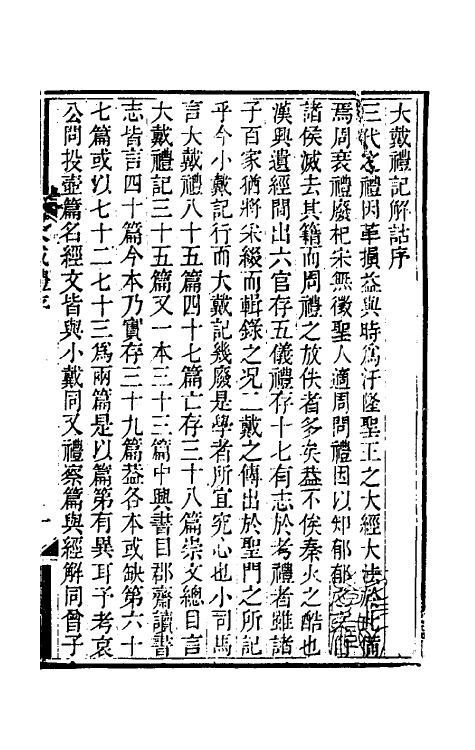 大戴禮記解詁序
三代之禮因革損益與時爲汙隆聖王之大經大法於此備
焉周衰禮廢杞宋無徵聖人適周問禮因以知郁郁之文而
諸侯滅去其籍而周禮之放佚者多矣葢不俟秦火之酷也
漢興遺經間出六官存五儀禮存十七有志於考禮者雖諸
子百家猶將采綴而輯錄之況二戴之傳出於聖門之所記
乎今小戴記行而大戴記幾廢是學者所宜究心也小司馬
言大戴禮八十五篇四十七篇亡存三十八篇崇文總目言
大戴禮記三十五篇又一本三十三篇中興書目郡齋讀書
志皆言四十篇今本乃實存三十九篇葢各本或缺第六十
七篇或以七十二七十三爲兩篇是以篇第有異耳予考哀
公問投壺篇名經文皆與小戴同又禮察篇與經解同曾子
大戴禮序
一